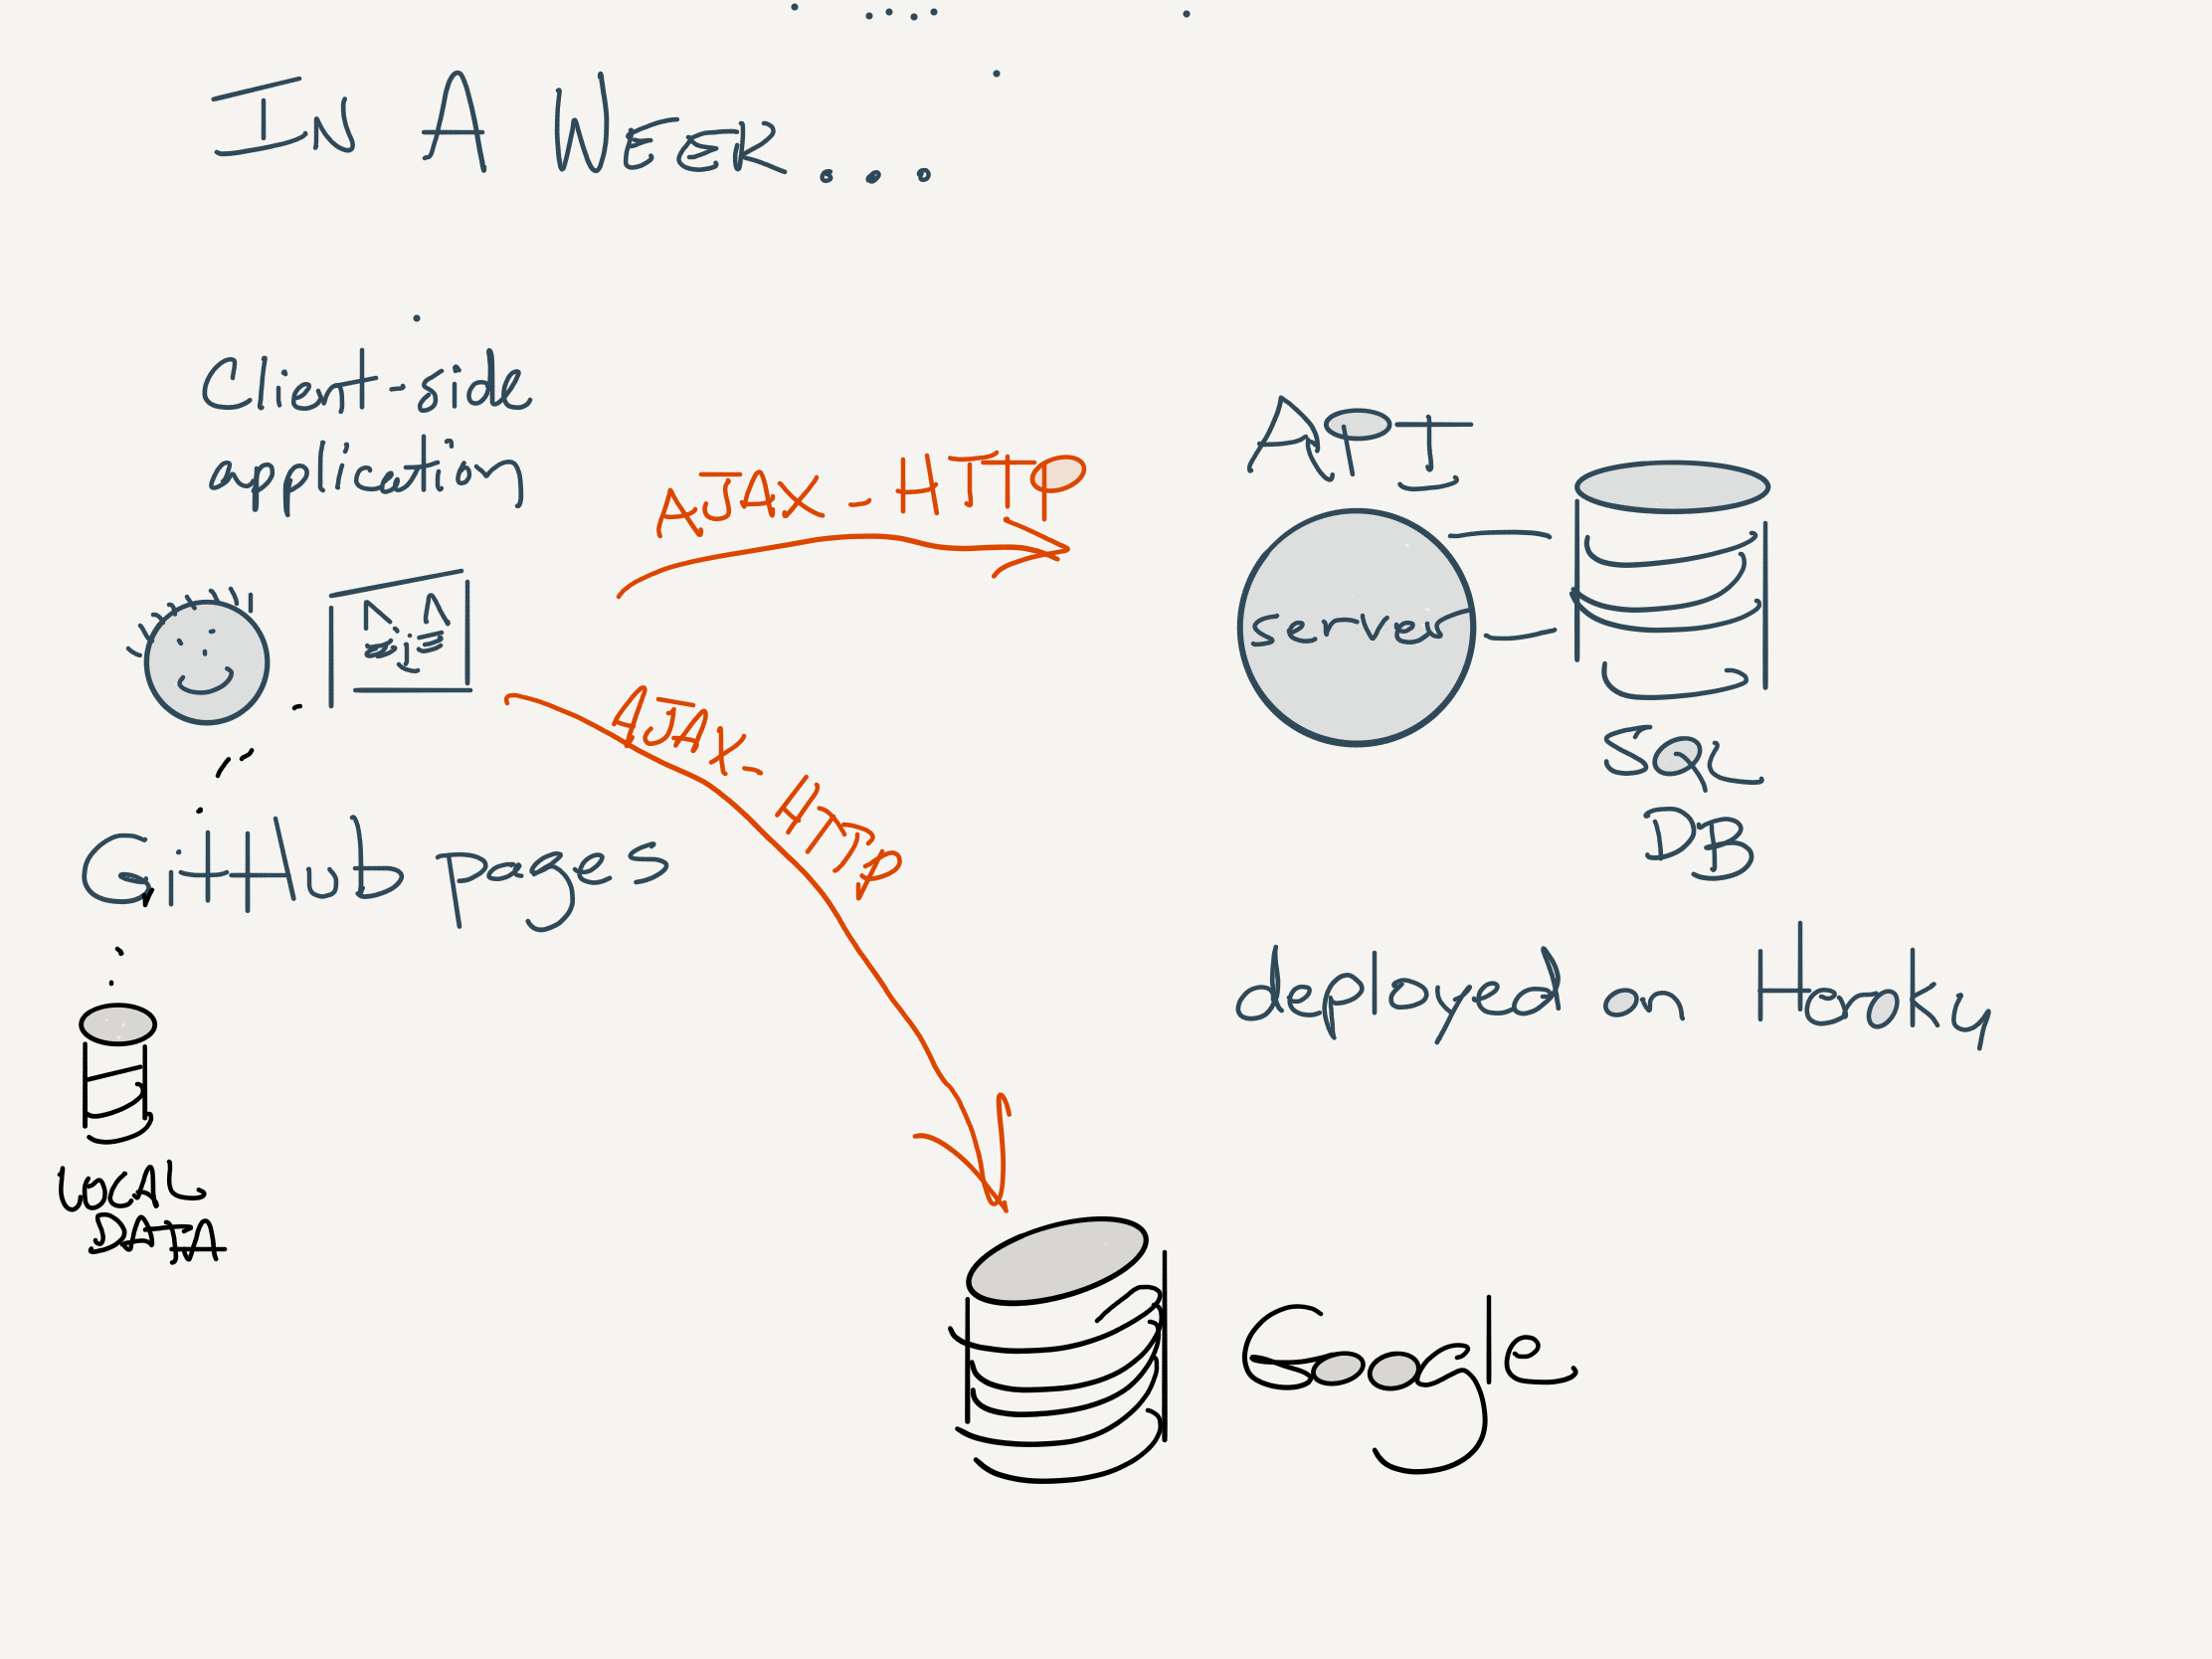 IN A WEEK...
Client-side
application
AJAX - HTTP
API
server
SQL
DB
AJAX - HTTP
GitHub pages
deployed on Heroku
LOCAL
DATA
Google